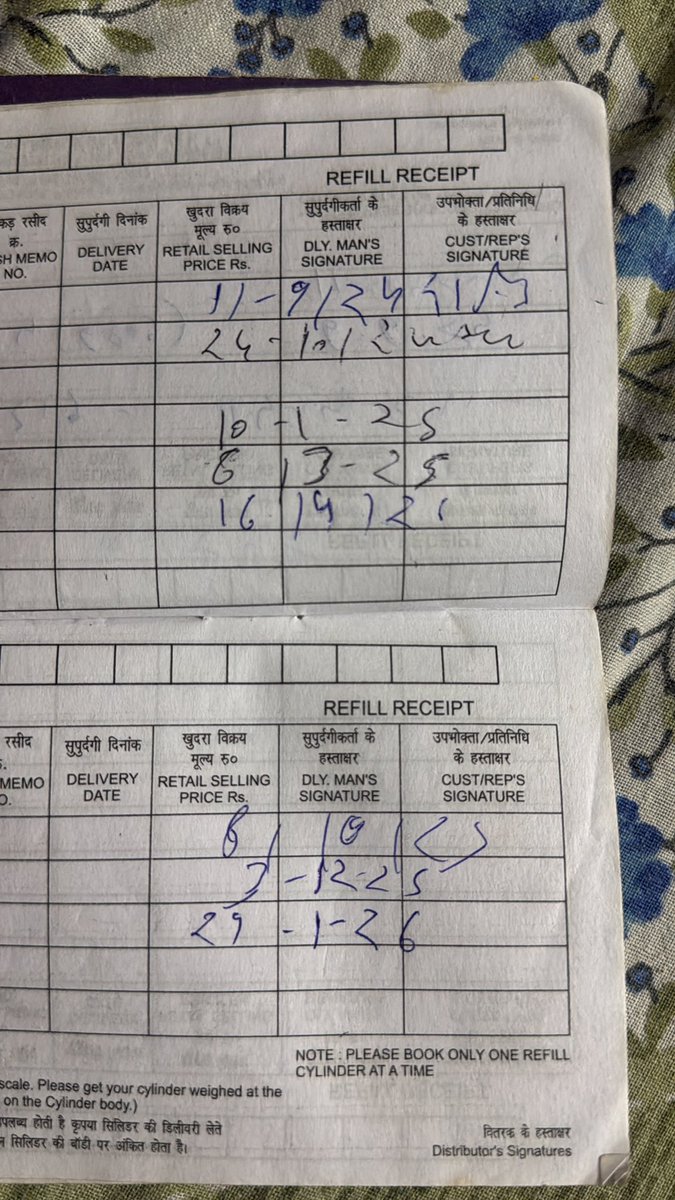 REFILL RECEIPT
कड़ रसीद
क्र.
SH MEMO
NO.
सुपुर्दगी दिनांक
DELIVERY
DATE
खुदरा विक्रय
मूल्य रु०
RETAIL SELLING
PRICE Rs.
सुपुर्दगीकर्ता के
हस्ताक्षर
DLY. MAN'S
SIGNATURE
उपभोक्ता/प्रतिनिधि
के हस्ताक्षर
CUST/REP'S
SIGNATURE
11-9/24
24-10/2
10-1-25
8/3-25
16/4/2
REFILL RECEIPT
रसीद
MEMO
O.
सुपुर्दगी दिनांक
DELIVERY
DATE
खुदरा विक्रय
मूल्य रु०
RETAIL SELLING
PRICE Rs.
सुपुर्दगीकर्ता के
हस्ताक्षर
DLY. MAN'S
SIGNATURE
उपभोक्ता/प्रतिनिधि
के हस्ताक्षर
CUST/REP'S
SIGNATURE
3-12-25
29-1-26
NOTE : PLEASE BOOK ONLY ONE REFILL
CYLINDER AT A TIME
scale. Please get your cylinder weighed at the
on the Cylinder body.)
पलब्ध होती है कृपया सिलिंडर की डिलीवरी लेते
न सिलिंडर की बॉडी पर अंकित होता है।
वितरक के हस्ताक्षर
Distributor's Signatures